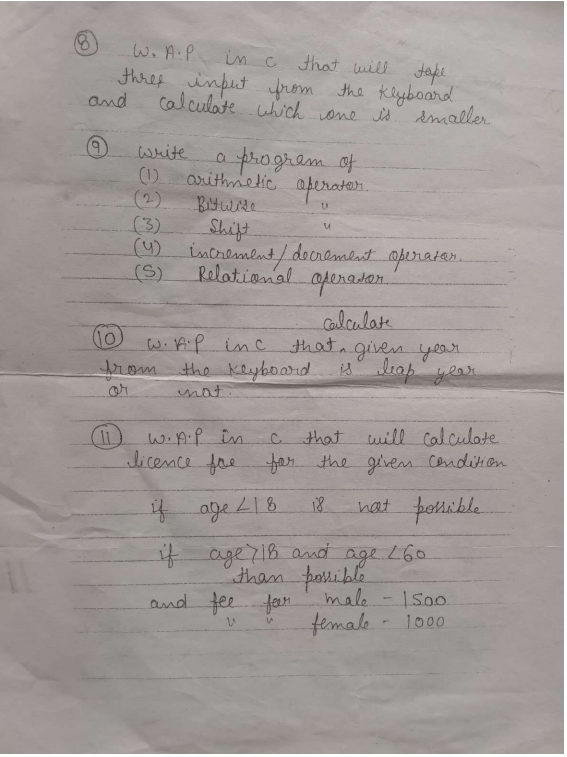 8 W.A.P in c that will tape
three input from the keyboard
and calculate which one is smaller
9 Write a program of
(1) arithmetic operator.
(2) Bitwise "
(3) Shift "
(4) increment/decrement operator.
(5) Relational operator
calculate
10 W.A.P in c that given year
from the keyboard is leap year
or not.
11 W.A.P in c that will calculate
licence fee for the given condition
if age <18 is not possible
if age >18 and age <60
than possible
and fee for male - 1500
" " female - 1000